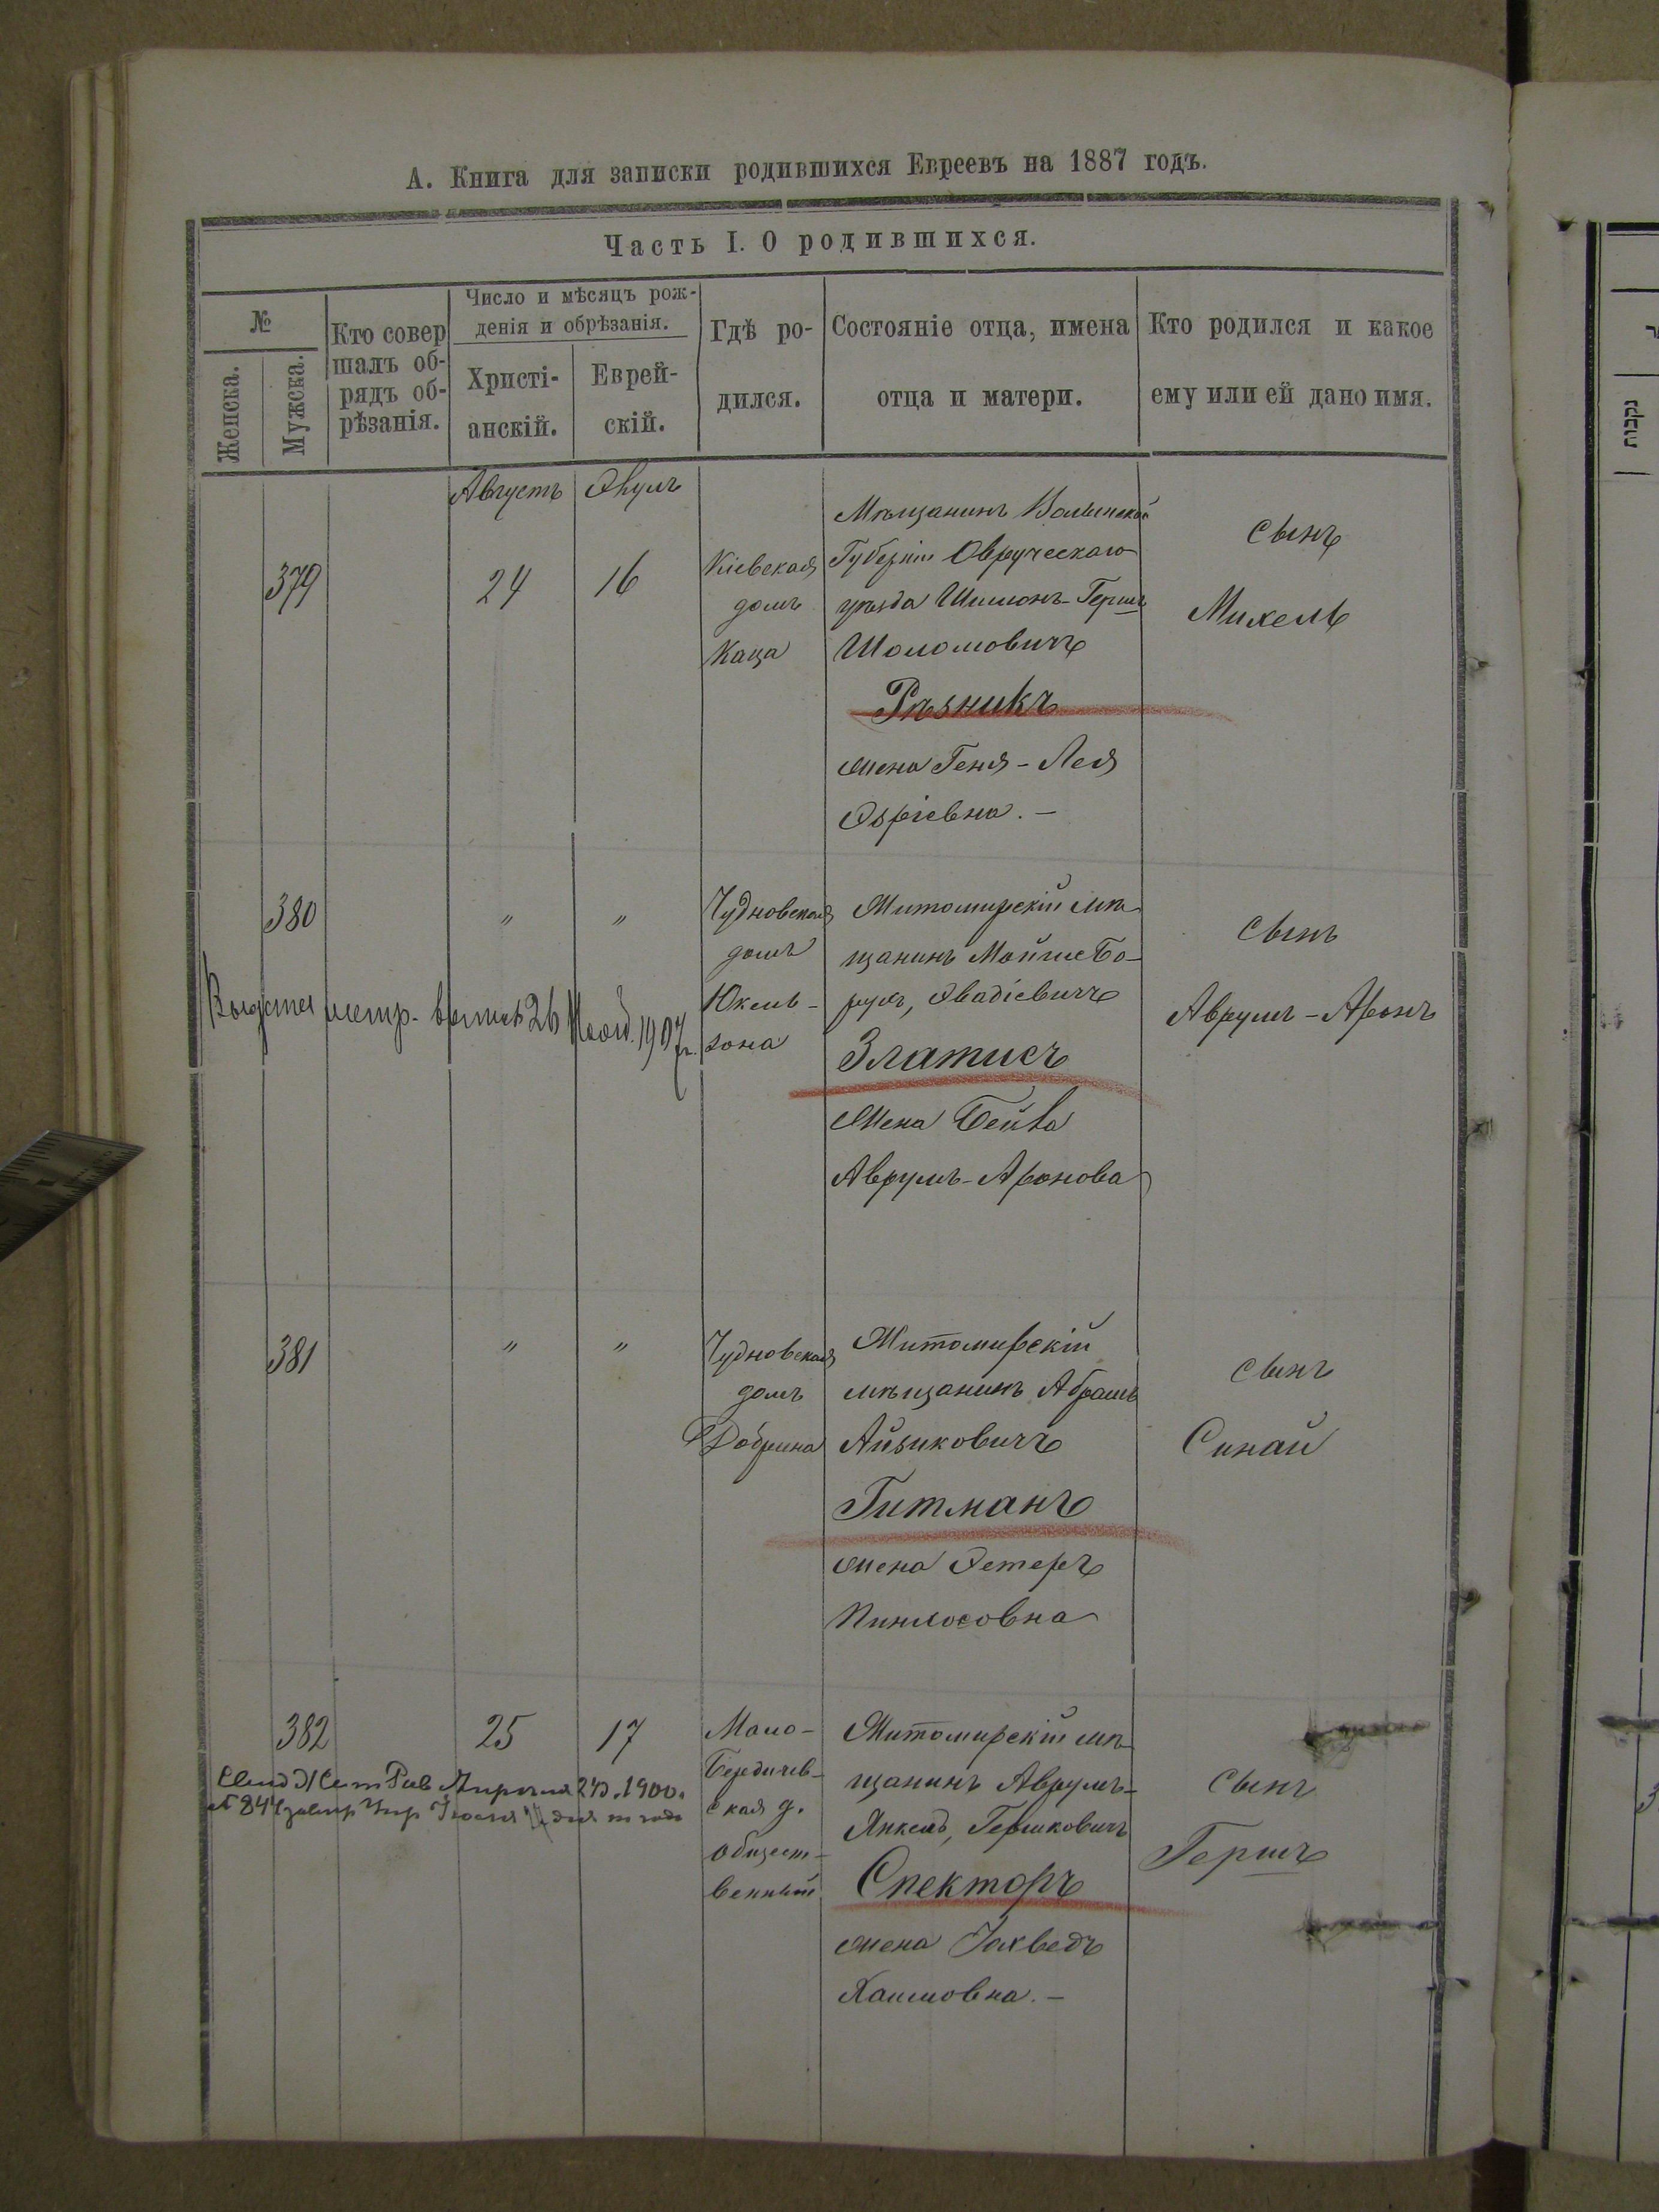 А. Книга для записки родившихся Евреевъ на 1887 годъ.
Часть I. О родившихся.
№
Женска.
Мужска.
Кто совер
шалъ об-
рядъ об-
рѣзанія.
Число и мѣсяцъ рож-
денія и обрѣзанія.
Христі-
анскій.
Еврей-
скій.
Гдѣ ро-
дился.
Состояніе отца, имена
отца и матери.
Кто родился и какое
ему или ей дано имя.
Августъ
Элулъ
379
24
16
Кіевская
домъ
Каца
Мѣщанинъ Волынской
Губерніи Овруческаго
уѣзда Шимонъ-Гершъ
Шоломовичъ
Рѣзникъ
жена Геня-Лея
Озріевна.-
Сынъ
Михель
380
"
"
Чудновская
домъ
Юкель-
зона
Житомирскій мѣ-
щанинъ Мойше Бо-
рухъ, Овадіевичъ
Златисъ
Жена Бейла
Аврумъ-Аронова
Сынъ
Аврумъ-Аронъ
метр.
26
1907
381
"
"
Чудновская
домъ
Добрина
Житомирскій
мѣщанинъ Абрамъ
Айзиковичъ
Гитманъ
жена Эстеръ
Пинхосовна
сынъ
Синай
382
25
17
Мало-
Бердичев-
ская д.
общест-
венный
Житомирскій мѣ-
щанинъ Аврумъ-
Янкель, Гершковичъ
Спекторъ
жена Іохведъ
Хаимовна.-
сынъ
Гершъ
1900.
№ 844
נקבות